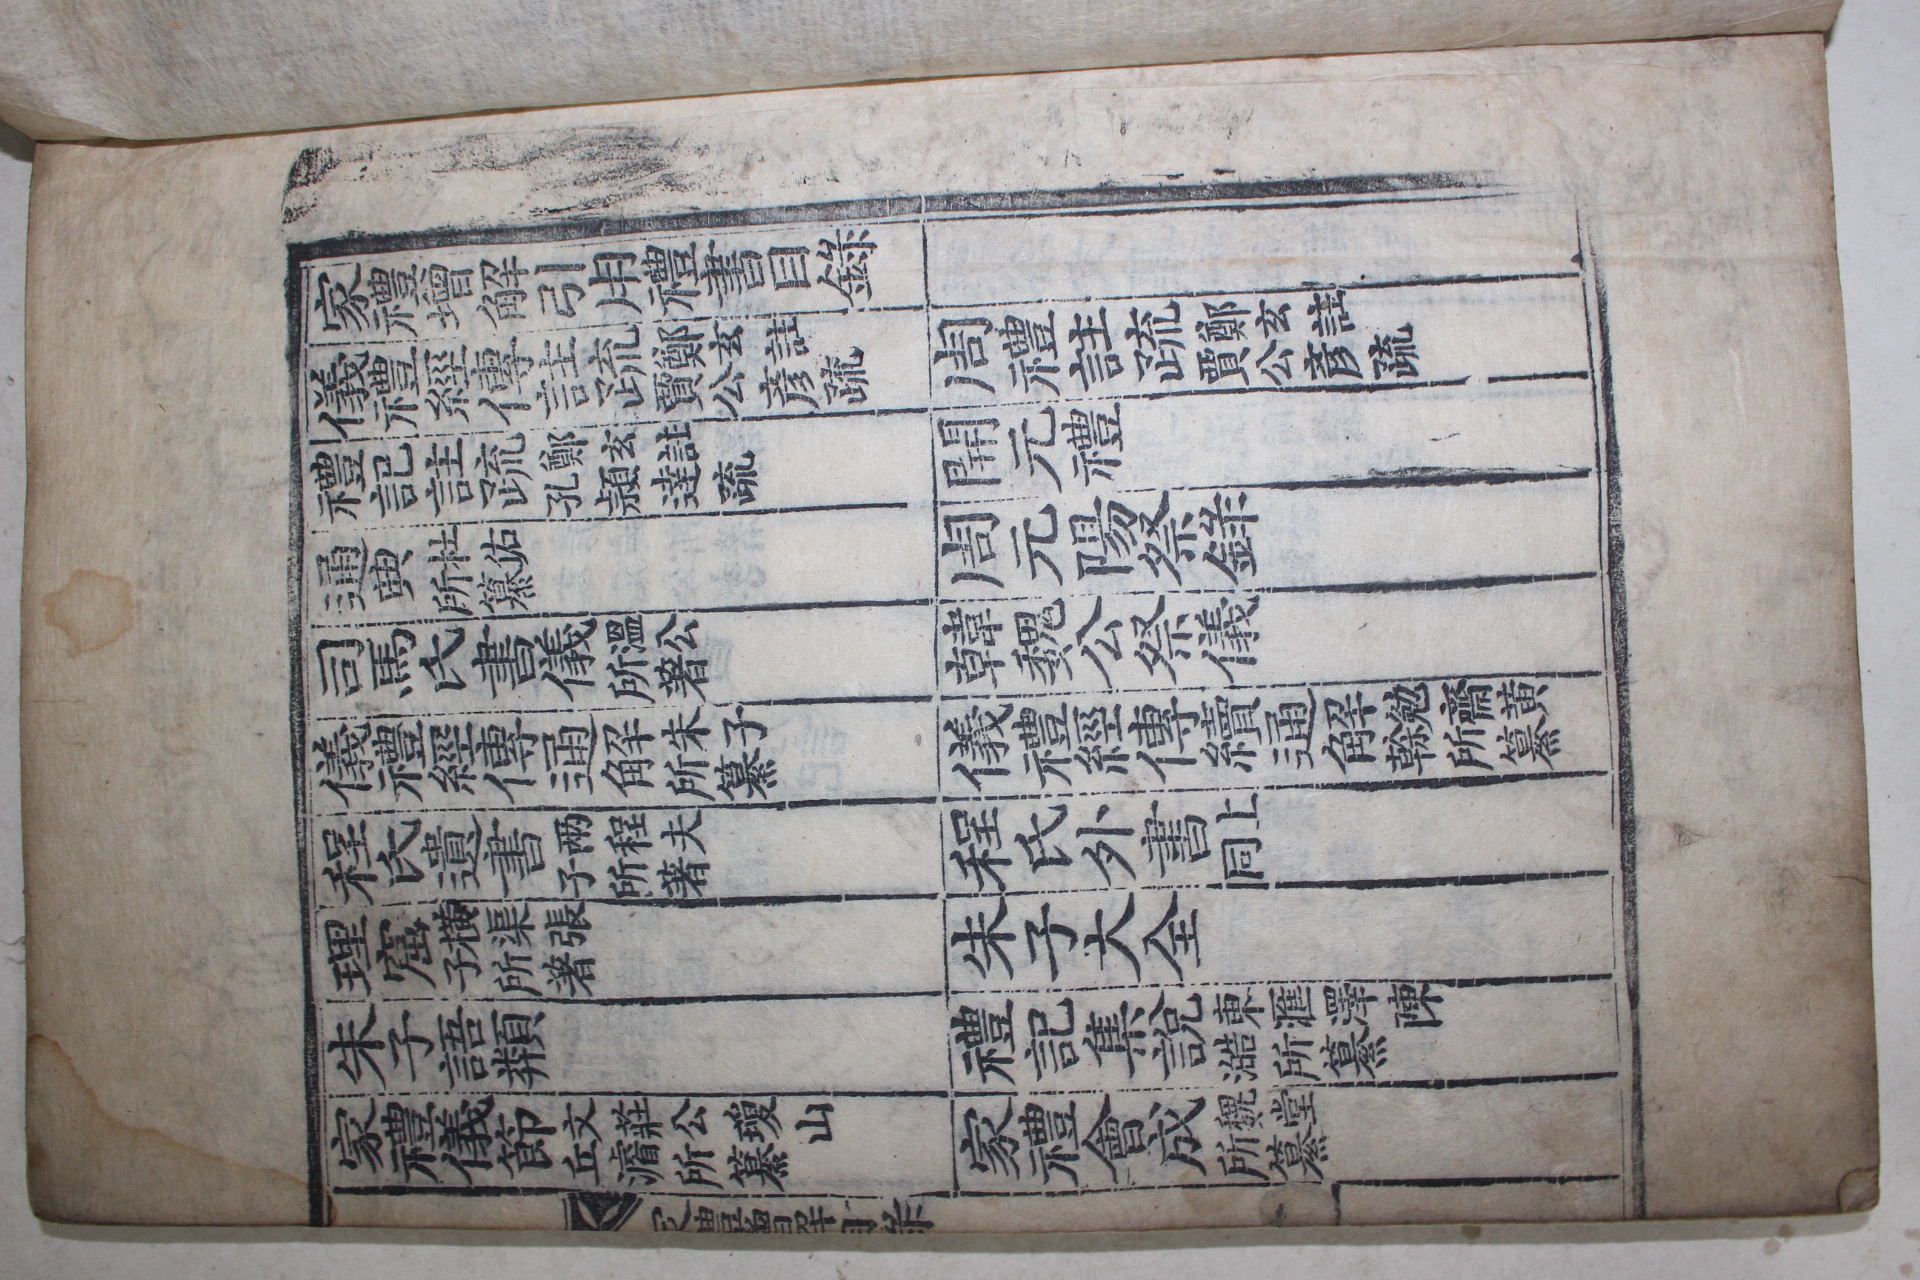 家禮增解引用禮書目錄
儀禮經傳註疏 鄭玄註 賈公彥疏
周禮註疏 鄭玄註 賈公彥疏
禮記註疏 鄭玄註 孔穎達疏
開元禮
通典 杜佑 所纂
周元陽祭錄
司馬氏書儀 溫公 所著
韓魏公祭儀
儀禮經傳通解 朱子 所纂
儀禮經傳續通解 勉齋黃 榦所纂
程氏遺書 兩程夫 子所著
程氏外書 上 同
理窟 橫渠張 子所著
朱子大全
朱子語類
禮記集說 東滙澤陳 澔所纂
家禮儀節 文莊公瓊山 丘濬所纂
家禮會成 魏堂 所纂
家禮增解目錄